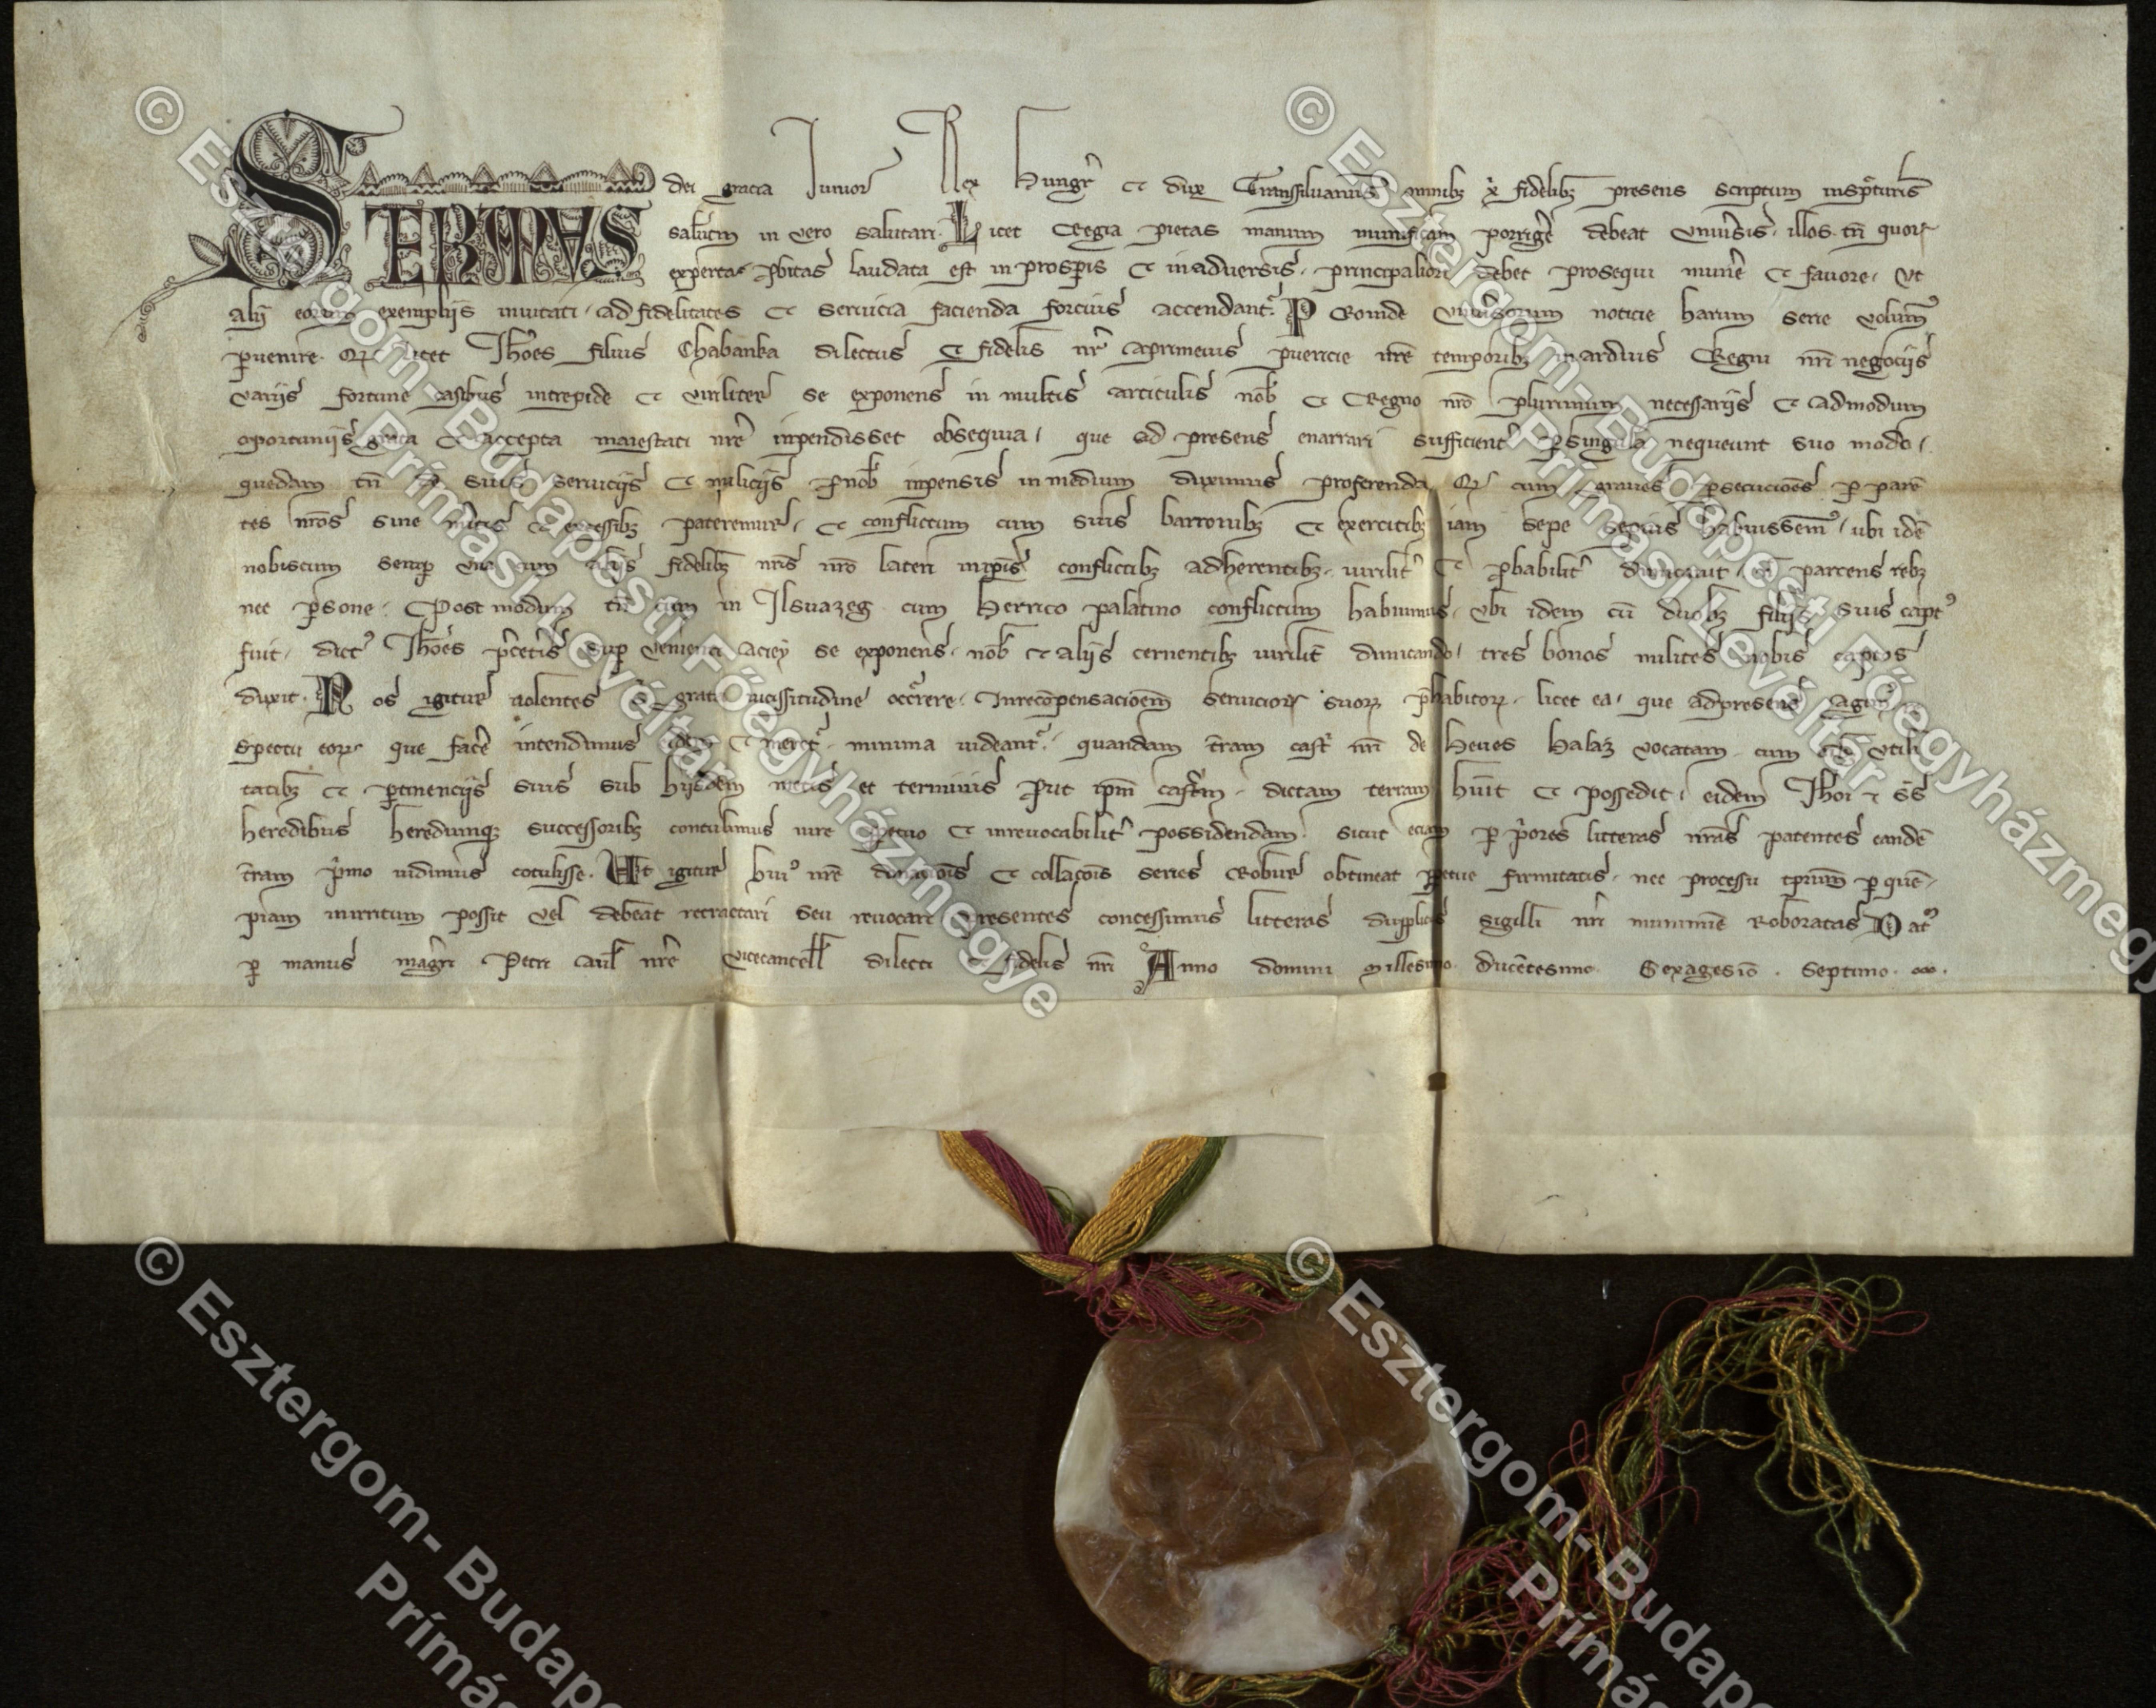 STEPHANUS dei gracia Iunior Rex Hungr et dux Transsiluanus omnibz x fidelibz presens scriptum inspecturis
salutem in vero salutari. Licet Regia pietas manum munificam porrigere debeat vniuersis. illos tn quorum
experta probitas laudata est in prosperis et in aduersis. principaliori debet prosequi munere et fauore. vt
alij eorum exemplis inuitati. ad fidelitates et seruicia facienda forcius accendantr. Proinde vniuersorum noticie harum serie volumus
peruenire. Qd licet Thoes filius Chabanka dilectus et fidelis nr a primeuis puericie nre temporibz in arduis Regni nri negocijs
varijs fortune casibus intrepide et viriliter se exponens in multis articulis nob et Regno nro plurimum necessarijs et admodum
oportunis grata et accepta maiestati nre inpendisset obsequia. que ad presens enarrari sufficienter per singula nequeunt suo modo.
quedam tn de suis seruicijs et milicijs pro nob inpensis in medium duximus proferenda. Qd cum graues persecuciones per paren
tes nros sine meritis et excessibz pateremur. et conflictum cum suis baronibz et exercitibz iam sepe sepius habuissemus. ubi iden
nobiscum semper vna cum alijs fidelibz nris nro lateri in ipsis conflictibz adherentibz. uirilit et probabilit dimicauit. non parcens rebz
nec persone. Post modum tn cum in Ilsuazeg cum Herrico palatino conflictum habuimus. vbi idem cu duobz filijs suis captus
fuit. dictus Thoes pre ceteris super venienti aciey se exponens. nob et alijs cernentibz uirilit dimicando. tres bonos milites nobis captos
duxit. Nos igitur uolentes ei grata uicissitudine occurrere. In recompensacionem seruiciorum suorum prehabitorum. licet ea. que ad presens agimus re
spectu eorum que facere intendimus et meretur. minima uideantur. quandam terram castri nri de Heues Halaz vocatam. cum vtili
tatibz et pertinencijs suis sub hijsdem metis et terminis prout ipm castrum. dictam terram habuit et possedit. eidem Thoe et suis
heredibus heredumqz successoribz contulimus iure perpetuo et inreuocabilit possidendam. sicut eciam per priores litteras nras patentes eande
terram primo uidimus cotulisse. Vt igitur huius nre donacionis et collacois series Robur obtineat perpetue firmitatis. nec processu temporum per quem
piam in irritum possit vel debeat retractari seu reuocari presentes concessimus litteras dupplicis sigilli nri munimine Roboratas Datum
per manus magri Petri Aule nre vicecancell dilecti et fidelis nri Anno domini Millesimo. ducetesimo. Sexagesio. Septimo.
© Esztergom-Budapesti Főegyházmegye
Prímási Levéltár
© Esztergom-Budapesti Főegyházmegye
Prímási Levéltár
© Esztergom-Budape
Prímás
© Esztergom-Budape
Prímás